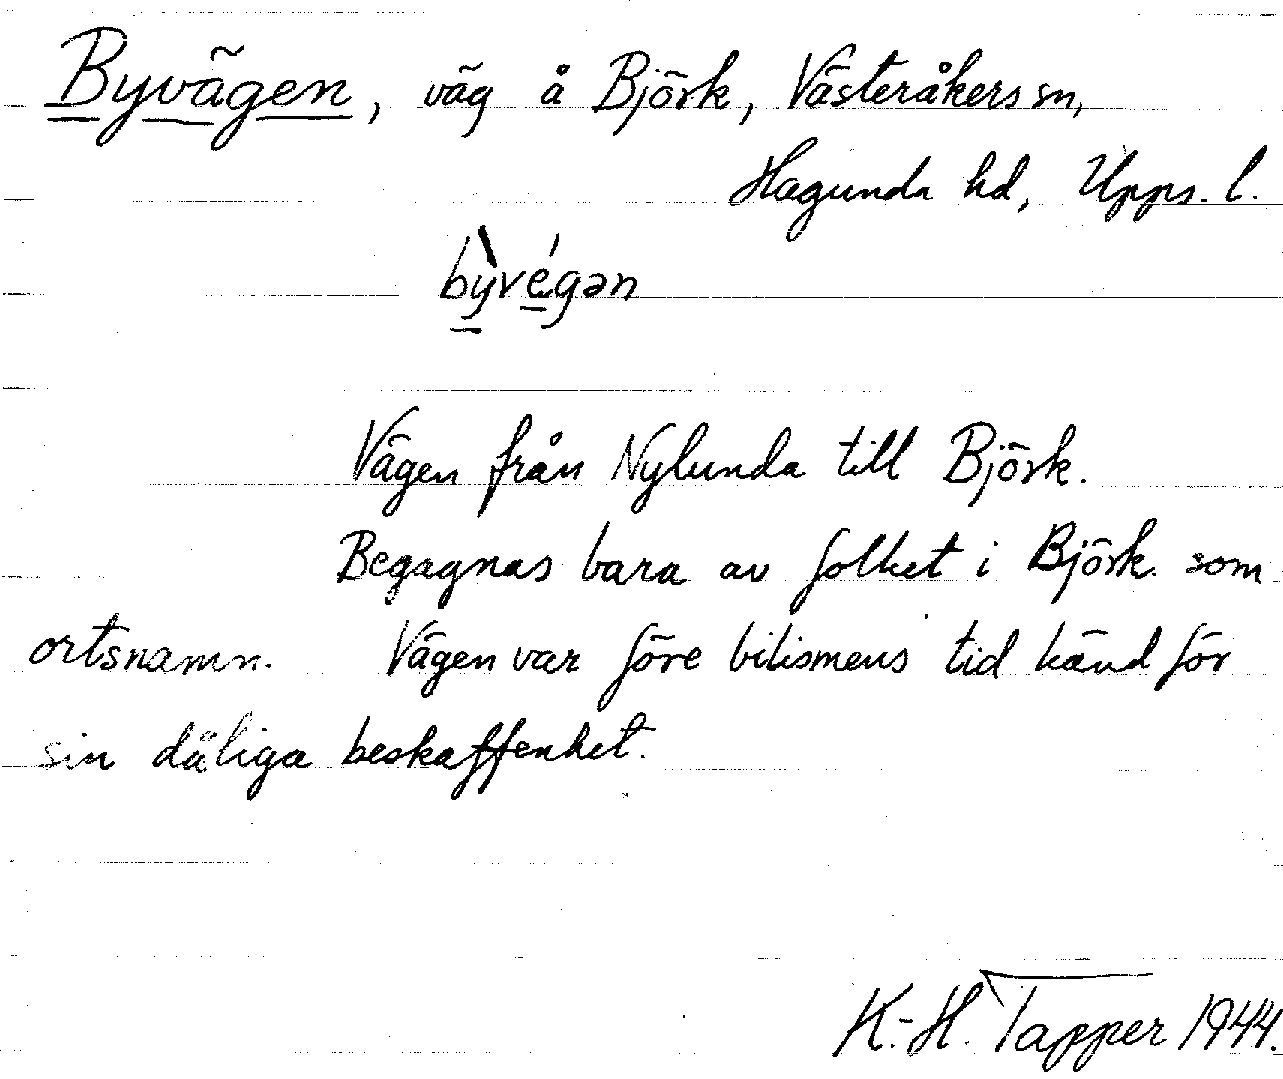 Byvägen, väg å Björk, Västeråkers sn,
Hagunda hd, Upps. l.
bỳ̠vé̠gən
Vägen från Nylunda till Björk.
Begagnas bara av folket i Björk som
ortsnamn. Vägen var före bilismens tid känd för
sin dåliga beskaffenhet.
K.-H. Tapper 1944.